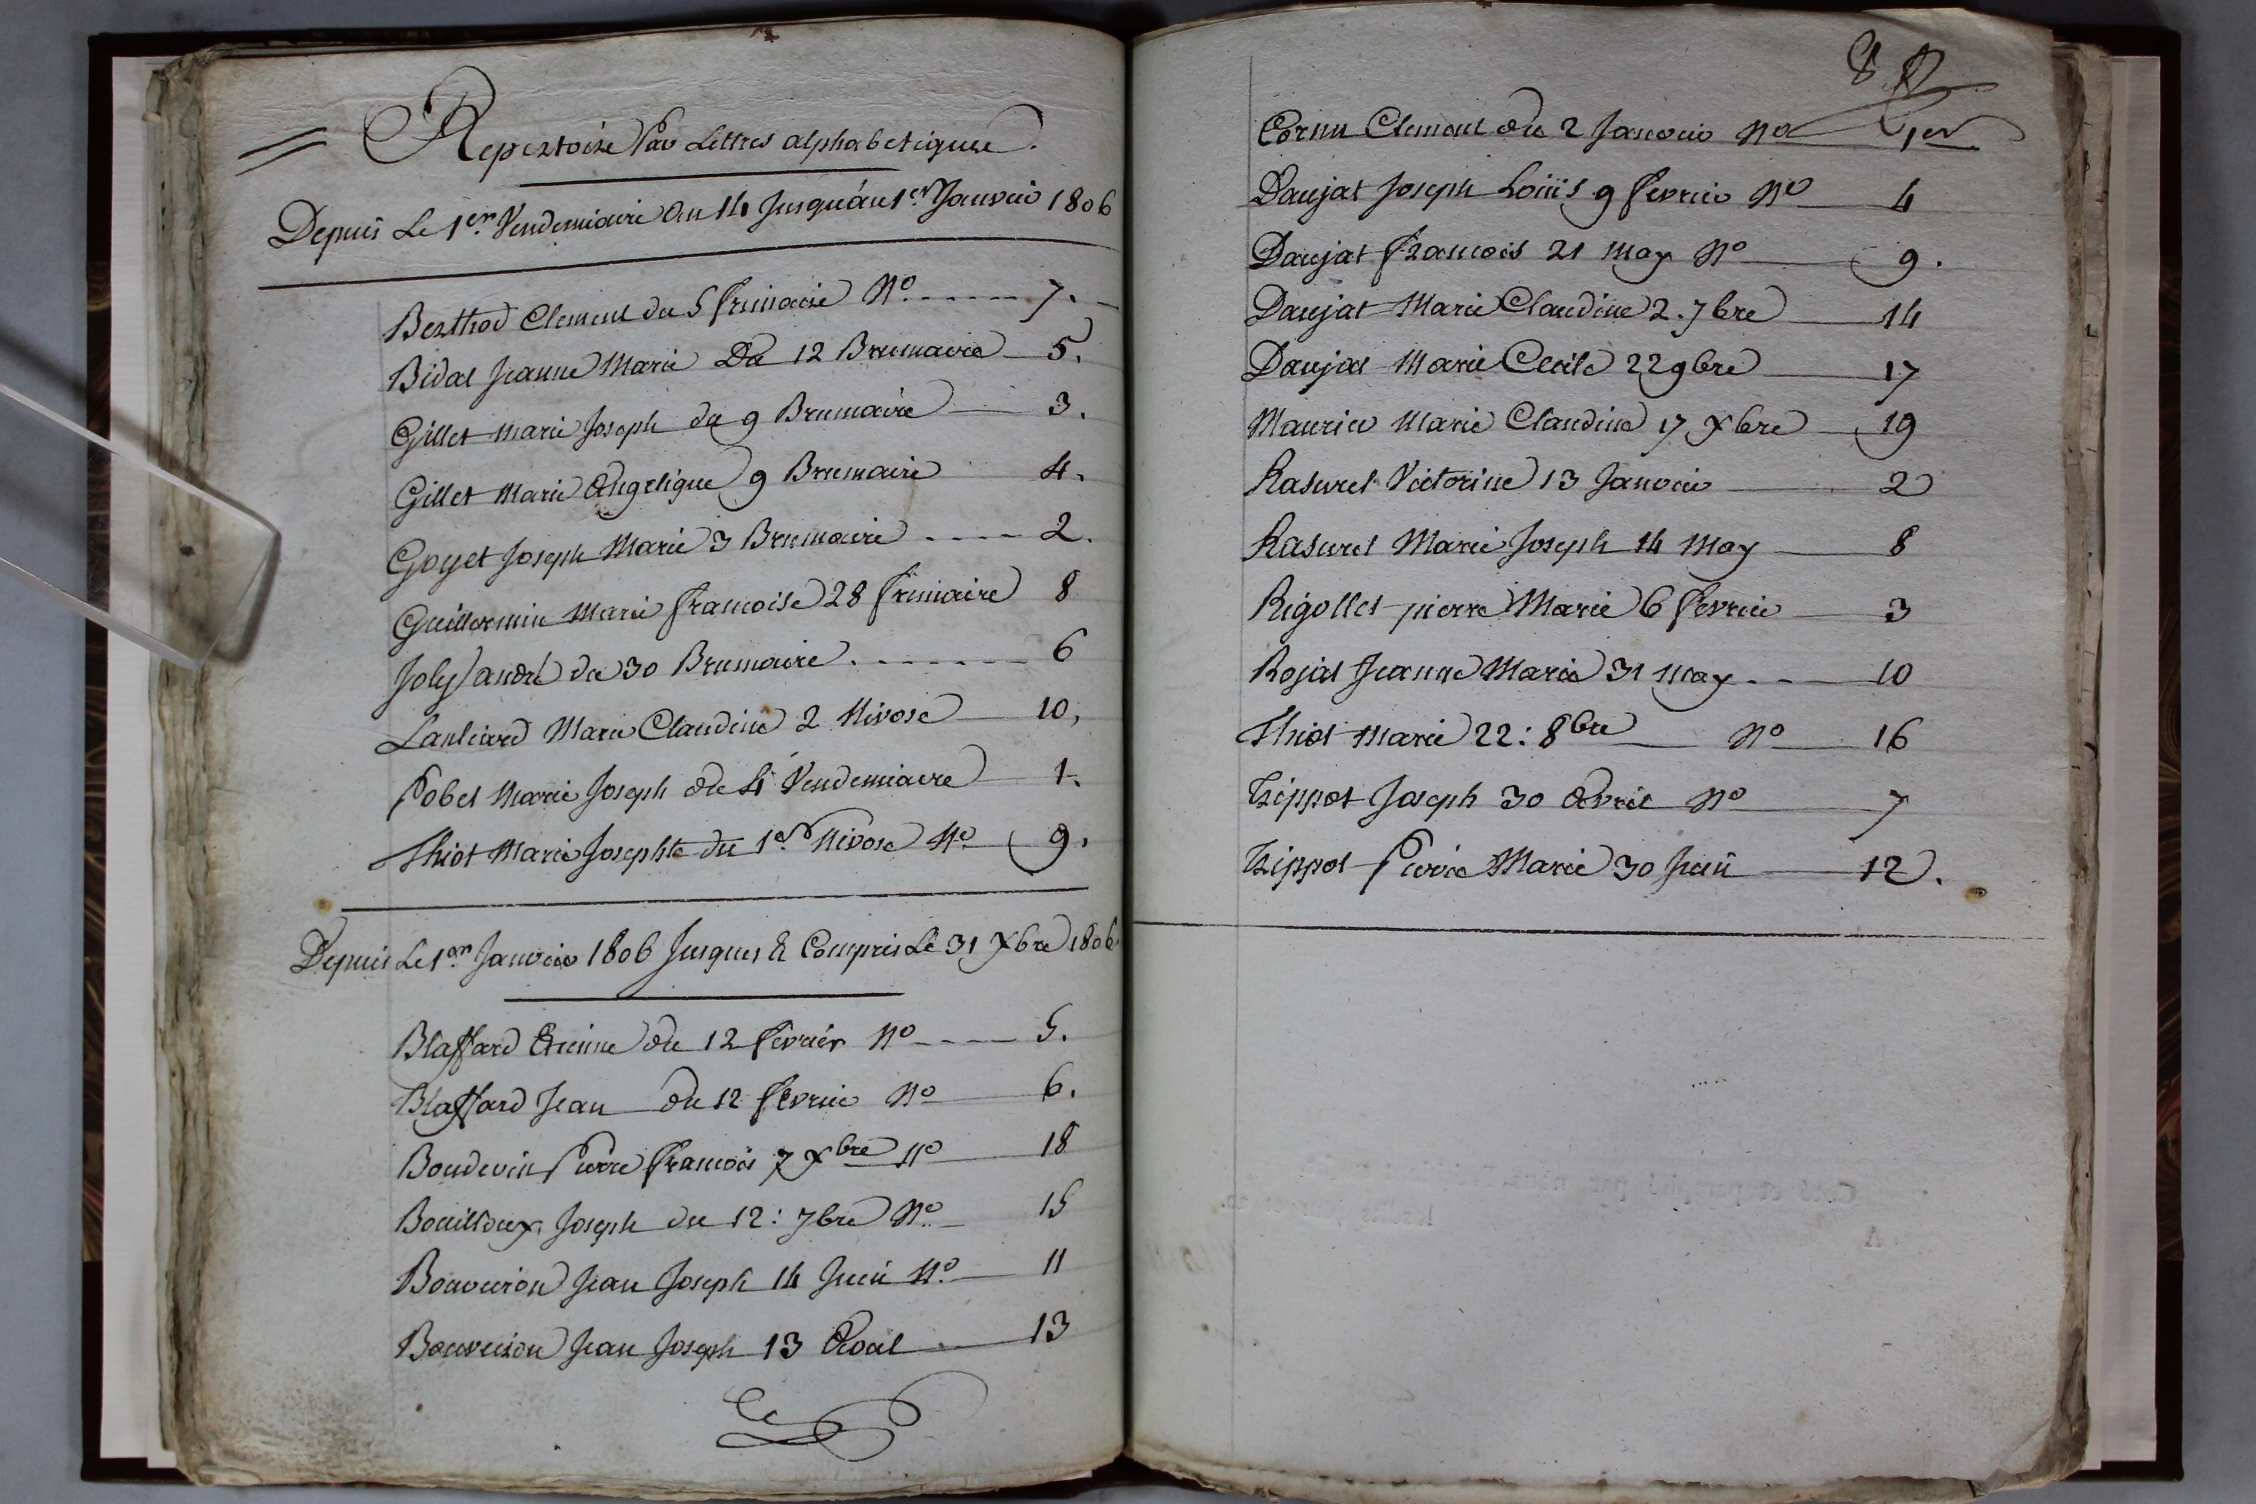 Repertoire Par Lettres alphabetique.
Depuis Le 1er. Vendemiaire an 14 Jusqu'au 1er. Janvier 1806
Berthod Clement du 5 frimaire No. 7.
Bidal Jeanne Marie Du 12 Brumaire 5.
Gillet Marie Joseph du 9 Brumaire 3.
Gillet Marie Angelique 9 Brumaire 4.
Goyet Joseph Marie 3 Brumaire 2.
Guillermin Marie francoise 28 frimaire 8
Joly andré du 30 Brumaire 6
Lanliard Marie Claudine 2 Nivose 10,
Pobel Marie Joseph du 4 Vendemiaire 1.
Thiot Marie Josephte du 1er. Nivose No. 9.
Depuis Le 1er. Janvier 1806 Jusques & Compris Le 31 Xbre 1806
Blaffard Etienne du 12 fevrier No 5.
Blaffard Jean du 12 fevrier No 6.
Boudevin Pierre francois 7 Xbre No 18
Bouilloux Joseph du 12: 7bre No. 15
Bouveiron Jean Joseph 14 Juin No. 11
Bouveiron Jean Joseph 13 Aout 13
8
Cornu Clement du 2 Janvier No 1er
Daujat Joseph Loüis 9 fevrier No 4
Daujat francois 21 may No 9.
Daujat Marie Claudine 2. 7bre 14
Daujat Marie Cecile 22 9bre 17
Maurice Marie Claudine 17 Xbre 19
Rasurel Victorine 13 Janvier 2
Rasurel Marie Joseph 14 May 8
Rigollet pierre Marie 6 fevrier 3
Rojat Jeanne Marie 31 may 10
Thiot Marie 22: 8bre No 16
Tippot Joseph 30 Avril No 7
Tippot Pierre Marie 30 Juin 12.